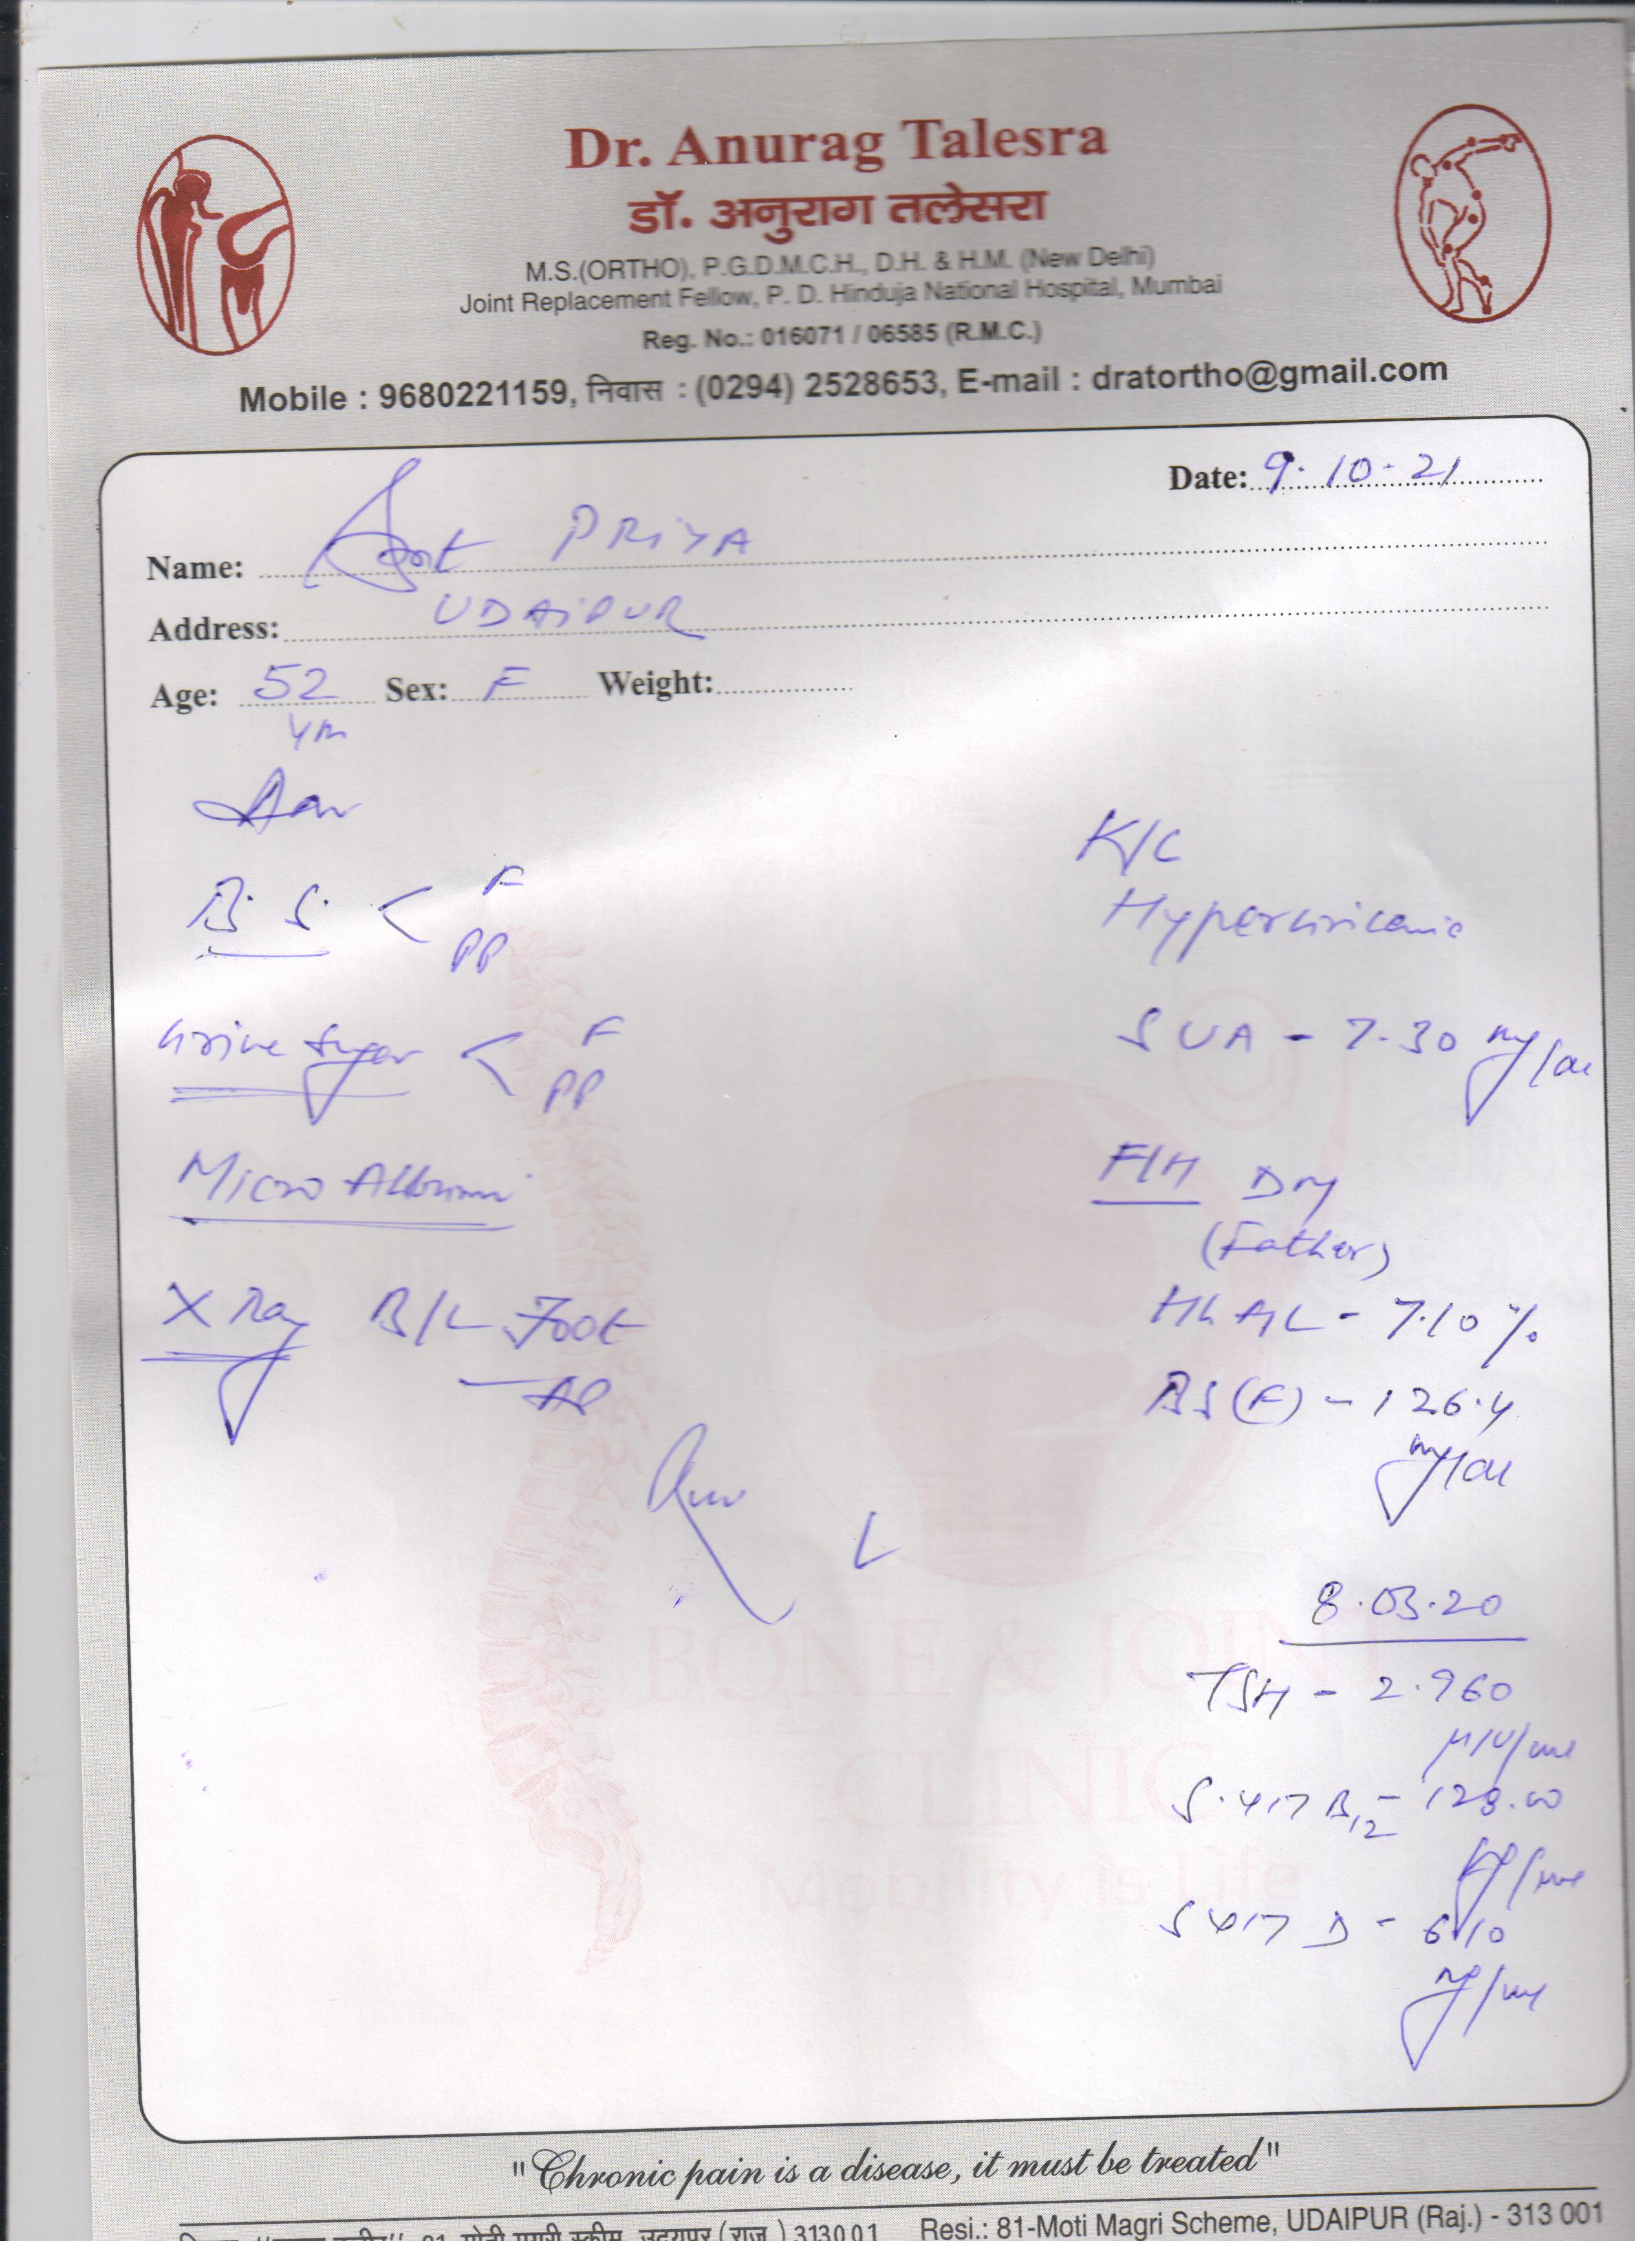 Dr. Anurag Talesra
डॉ. अनुराग तलेसरा
M.S.(ORTHO), P.G.D.M.C.H., D.H. & H.M. (New Delhi)
Joint Replacement Fellow, P. D. Hinduja National Hospital, Mumbai
Reg. No.: 016071 / 06585 (R.M.C.)
Mobile : 9680221159, निवास : (0294) 2528653, E-mail : dratortho@gmail.com
Date: 9.10.21
Name: Smt PRIYA
Address: UDAIPUR
Age: 52 Sex: F Weight:
yrs
Adv
B.S. < F
PP
Urine Sugar < F
PP
Micro Albumin
X Ray B/L Foot
— AP
K/C
Hyperuricemic
SUA - 7.30 mg/dl
F/H
(Father)
BS(F) - 126.4
mg/dl
8.03.20
TSH - 2.960
μIU/ml
BONE & JOINT
CLINIC
Mobility is Life
"Chronic pain is a disease, it must be treated"
Resi.: 81-Moti Magri Scheme, UDAIPUR (Raj.) - 313 001